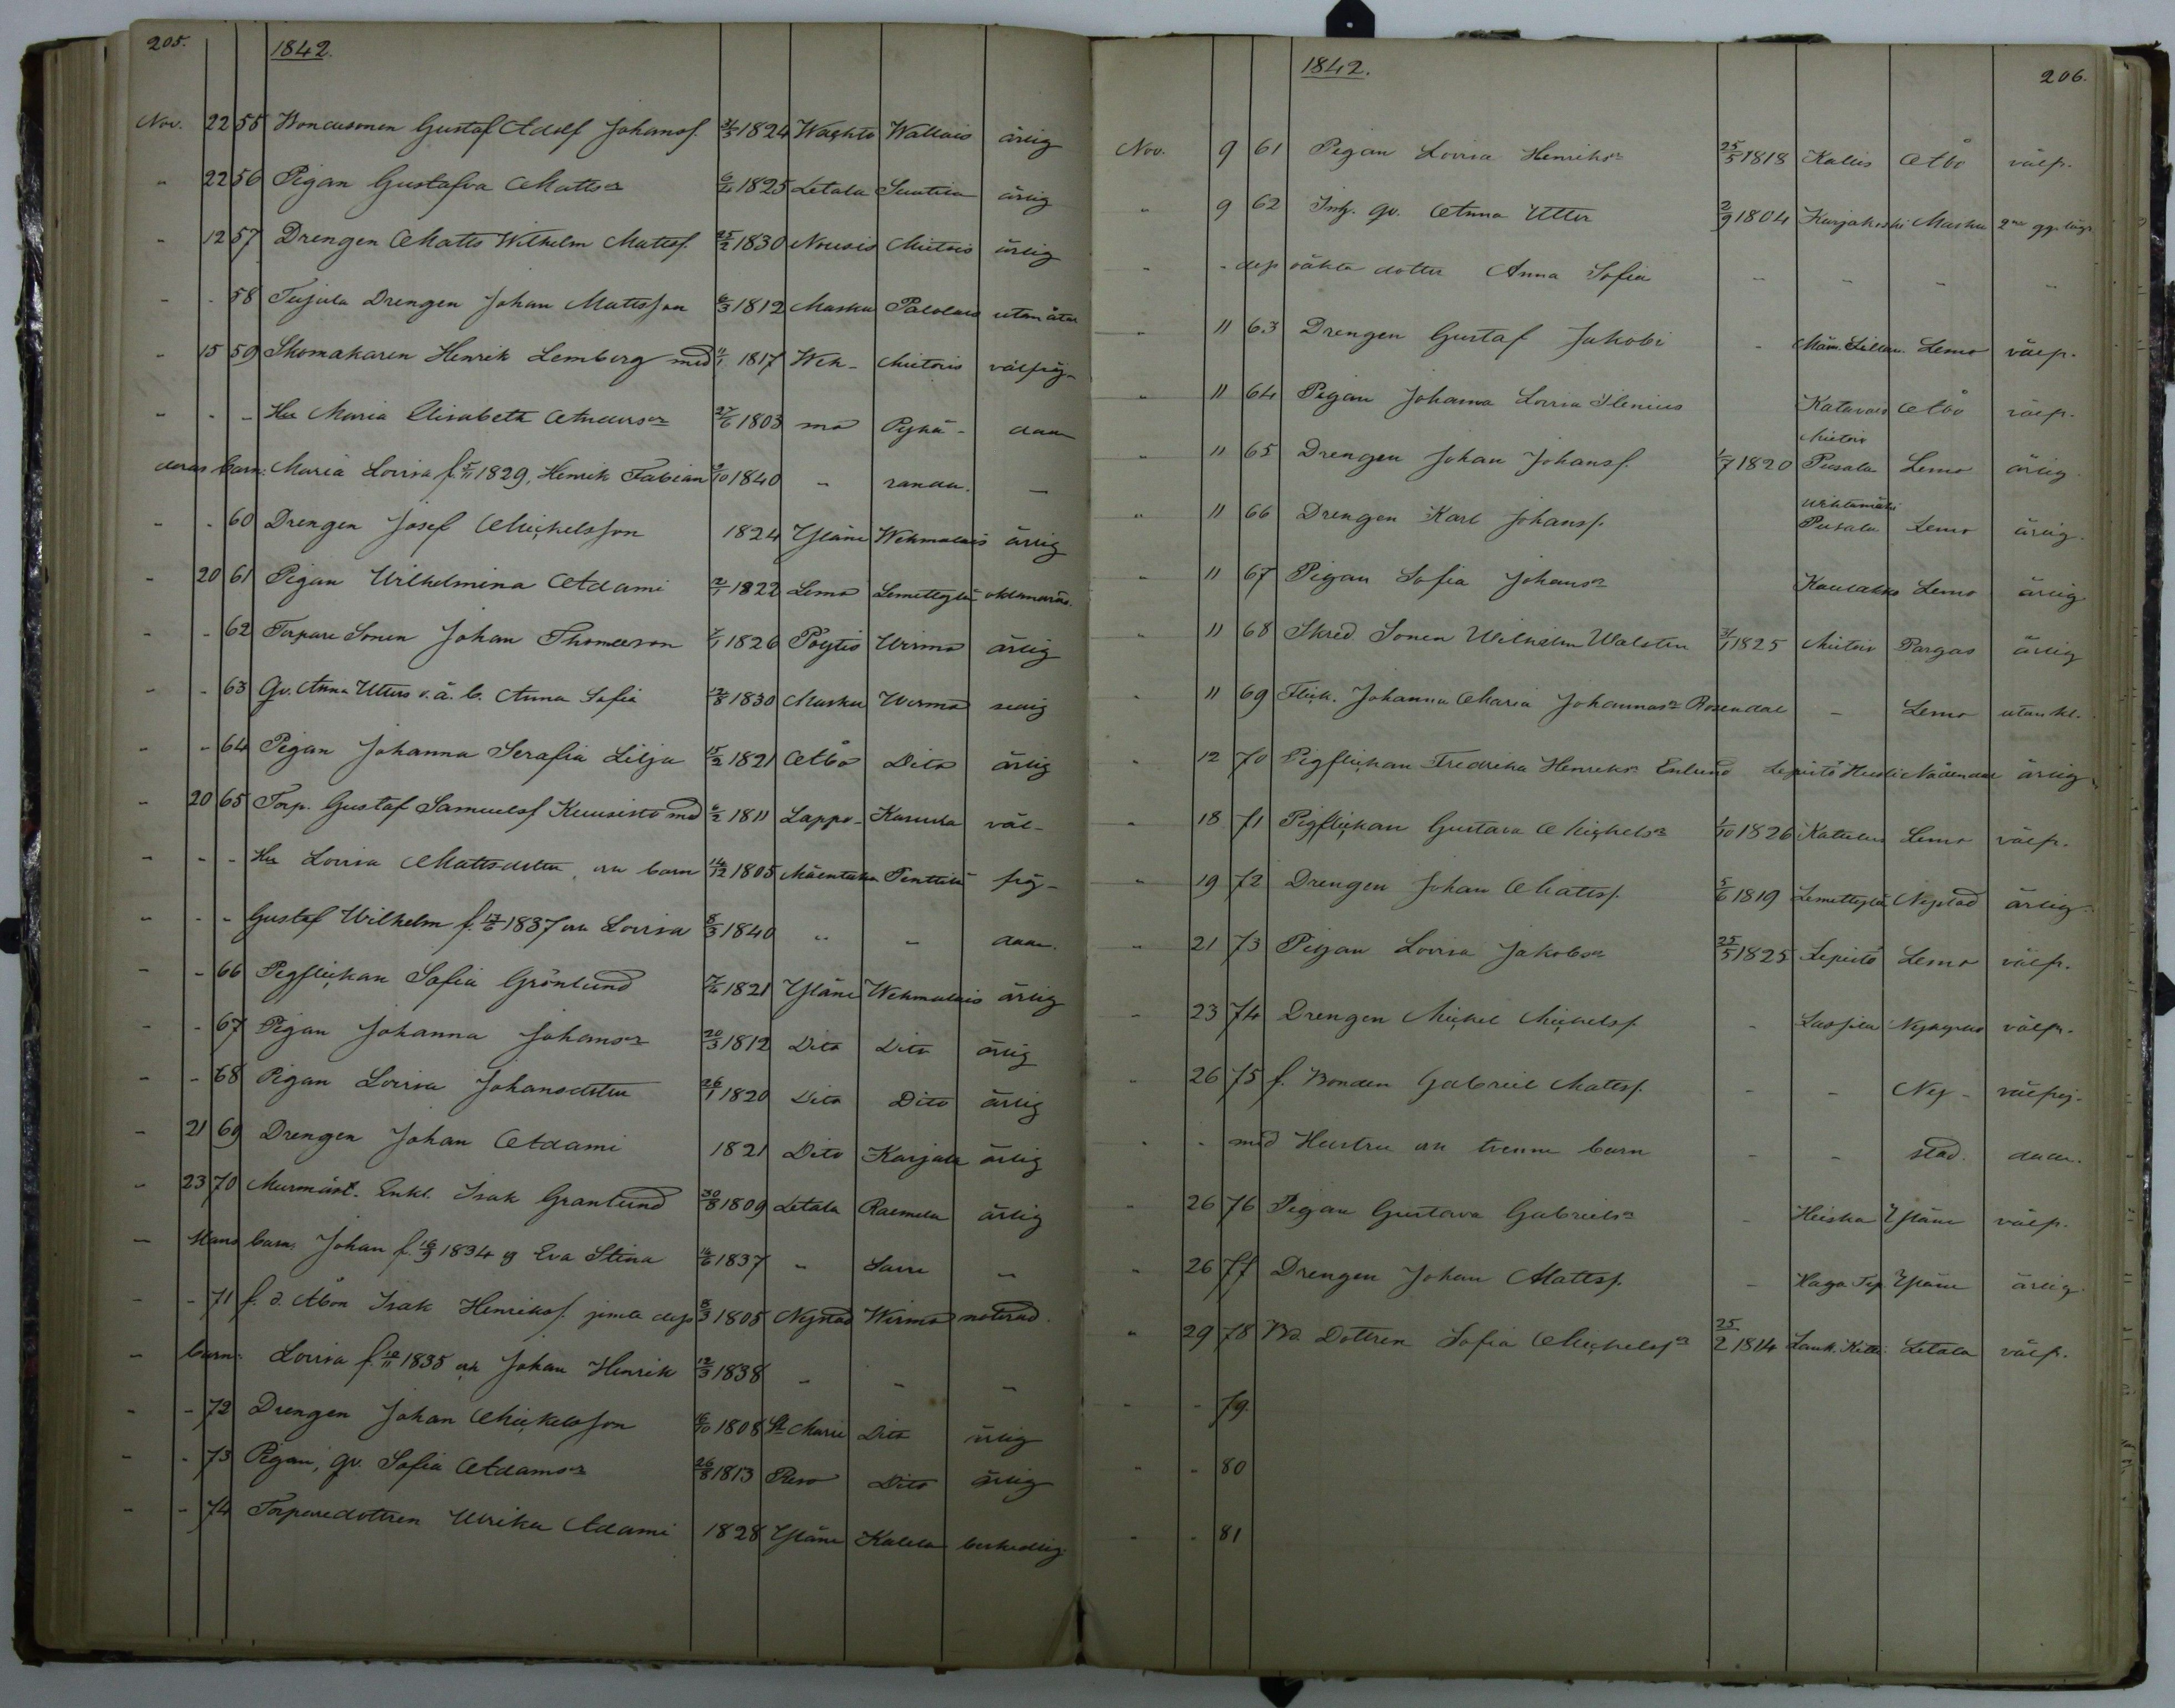 205.
1842.
Nov. 22 55 Bondesonen Gustaf Adolf Johansf. 31/3 1824 Wachto Wallais ärlig
" 22 56 Pigan Gustafva Mattsr 1825 Letala Suutila ärlig
" 12 57 Drengen Matts Wilhelm Mattsf. 25/2 1830 Nousis Mietois ärlig
- - 58 Tujula Drengen Johan Mattsson 6/3 1812 Masku Palolais utan åtal
- 15 59 Skomakaren Henrik Lemberg med 1817 Weh- Mietois välfrej-
- - - Hu Maria Elisabeth Andersr 27/6 1803 ma Pyhä- dad
deras barn: Maria Lovisa f. 5/11 1829, Henrik Fabian 9/10 1840 " randa. -
- - 60 Drengen Josef Michelsson 1824 Yläne Wehmalais ärlig
- 20 61 Pigan Wilhelmina Adami 2/1 1822 Lemo Lemettylä oklanderlig
- - 62 Torpare Sonen Johan Thomeson 7/1 1826 Pöytis Wirmo ärlig
- - 63 Qv. Anna Utters o. ä. b. Anna Sofia 12/8 1830 Masku Wirmo sedig
- - 64 Pigan Johanna Serafia Lilja 15/2 1821 Åbo Dito ärlig
- 20 65 Torp. Gustaf Samuelsf Kuusisto med 6/2 1811 Lappo- Karuna väl-
- - - Hu Lovisa Mattsdotter, oh barn 14/12 1805 Mäentaka Penttilä frej-
- - - Gustaf Wilhelm f. 13/6 1837 oh Lovisa 8/3 1840 " - dade.
- - 66 Pigflickan Sofia Grönlund 1821 Yläne Wehmalais ärlig
- - 67 Pigan Johanna Johansr 20/3 1812 Dito Dito ärlig
- - 68 Pigan Lovisa Johansdotter 26/1 1820 Dito Dito ärlig
- 21 69 Drengen Johan Adami 1821 Dito Karjala ärlig
- 23 70 Murmäst. Enkl. Isak Granlund 30/8 1809 Letala Raemela ärlig
- Hans barn: Johan f. 16/9 1834 o Eva Stina 14/6 1837 " Sauru -
- - 71 f. d. Åbon Isak Henriksf. jemte desf 8/3 1805 Nystad Wirmo noterad.
- barn: Lovisa f. 10/11 1835 och Johan Henrik 12/3 1838 - - -
- - 72 Drengen Johan Mickelsson 1808 St Marie Dito ärlig
- - 73 Pigan, qv. Sofia Adamsr 26/8 1813 Reso Dito ärlig
- - 74 Torparedottren Ulrika Adami 1828 Yläne Kalela beskedlig
1842.
206.
Nov. 9 61 Pigan Lovisa Henriksr 25/5 1818 Kallis Åbo välf.
" 9 62 Inh. qv. Anna Utter 2/9 1804 Karjakoski Masku 2ne gg. lägr.
" - desf oäkta dotter Anna Sofia - - - -
" 11 63 Drengen Gustaf Jakobi - Lemo välf.
" 11 64 Pigan Johanna Lovisa Ilenius Katavais Åbo välf.
" 11 65 Drengen Johan Johansf. 1/7 1820 Mietois Pusala Lemo ärlig
" 11 66 Drengen Karl Johansf. Pusala Lemo ärlig.
" 11 67 Pigan Sofia Johansr Kaulakko Lemo ärlig
" 11 68 Skred. Sonen Wilhelm Walsten 31/1 1825 Mietois Pargas ärlig
" 11 69 Flick. Johanna Maria Johannasr Rosendal - Lemo utan kl.
" 12 70 Pigflickan Fredrika Henriksr Enlund Lepistö Nådendal ärlig
" 18 71 Pigflickan Gustava Michelsr 1/10 1826 Lemo välf.
" 19 72 Drengen Johan Mattsf. 5/6 1819 Lemettylä Nystad ärlig.
" 21 73 Pigan Lovisa Jakobsr 25/5 1825 Lepistö Lemo välf.
" 23 74 Drengen Mickel Mickelsf. - Lassila Nykyrko välfr.
" 26 75 f. Bonden Gabriel Mattsf. - - Ny- välfrej-
" - med Hustru oh trenne barn - - stad. dade.
" 26 76 Pigan Gustava Gabrielsr - Heiska Yläne välf.
" 26 77 Drengen Johan Mattsf. - Haga Txp. Yläne ärlig.
" 29 78 Bd. Dottren Sofia Michelsr 25/2 1814 Lauk. Kitti. Letala välf.
" - 79.
" - 80
" - 81